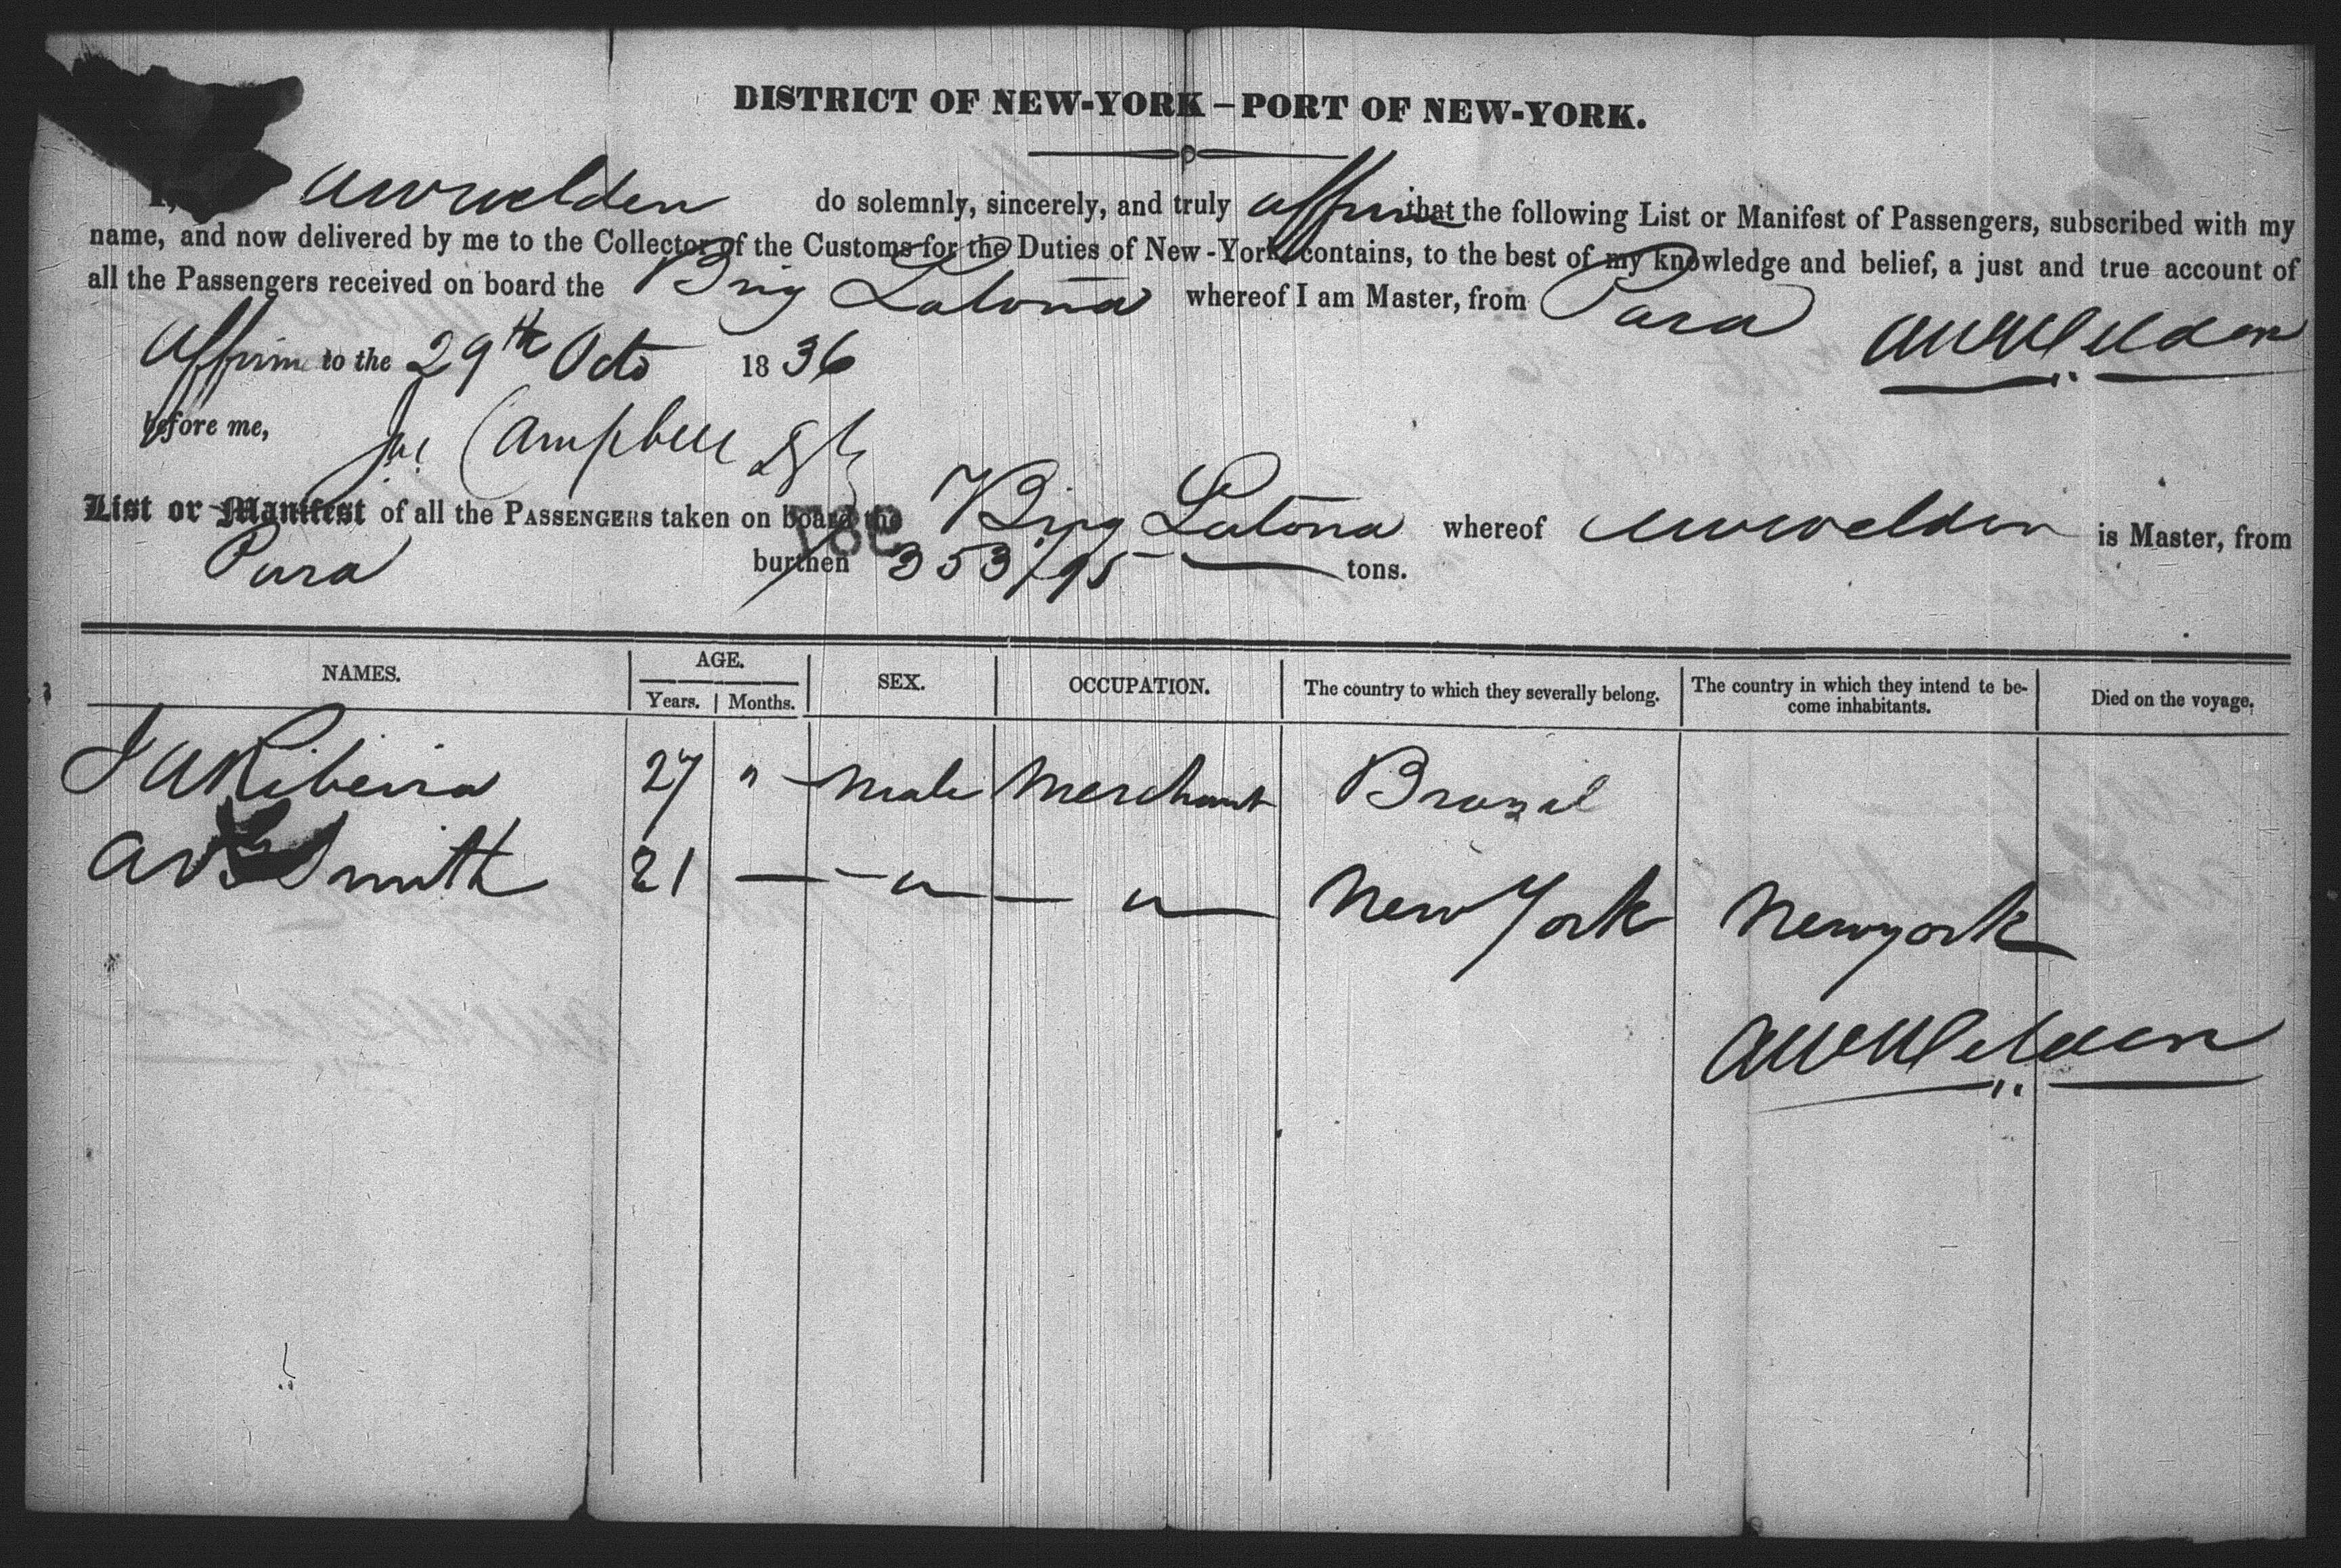 DISTRICT OF NEW-YORK – PORT OF NEW-YORK.
I, A W Welden do solemnly, sincerely, and truly affirm that the following List or Manifest of Passengers, subscribed with my
name, and now delivered by me to the Collector of the Customs for the Duties of New-York contains, to the best of my knowledge and belief, a just and true account of
all the Passengers received on board the Brig Latona whereof I am Master, from Para
Affirm to the 29th Octo 1836 A W Welden
before me,
Campbell
List or Manifest of all the PASSENGERS taken on board the Brig Latona whereof A W Welden is Master, from
Para burthen 353/95 tons.
NAMES. AGE. SEX. OCCUPATION. The country to which they severally belong. The country in which they intend to be-
come inhabitants. Died on the voyage.
Years. Months.
J A Ribeira 27 " Male Merchant Brazil
Smith 21 — – " — — " — New York New york
A W Welden